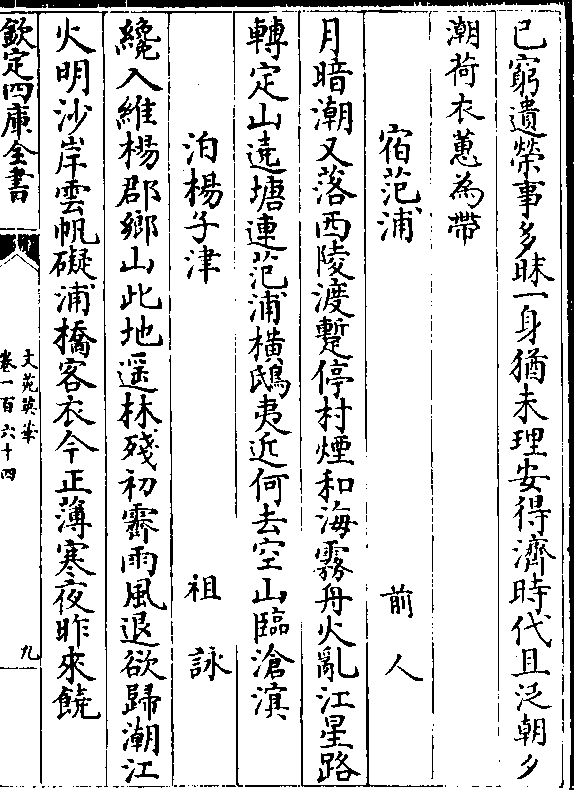 已窮遺榮事多昧一身猶未理安得濟時代且泛朝夕
潮荷衣蕙為帶
宿范浦　前人
月暗潮又落西陵渡蹔停村煙和海霧舟火亂江星路
轉定山遶塘連范浦橫鴟夷近何去空山臨滄溟
泊楊子津　祖詠
纔入維楊郡鄉山此地遥林殘初霽雨風退欲歸潮江
火明沙岸雲帆礙浦橋客衣今正薄寒夜昨來饒
欽定四庫全書
文苑英華
卷一百六十四
九